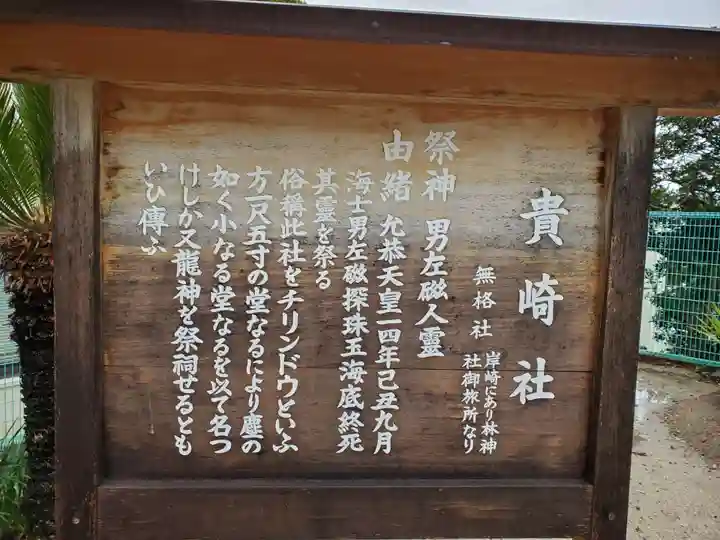 貴崎社
無格社
岸崎にあり林神
社御旅所なり
祭神 男左磁人霊
由緒 允恭天皇二四年己丑九月
海士男左磁探珠玉海底終死
其霊を祭る
俗稱此社をチリンドウといふ
方一尺五寸の堂なるにより塵の
如く小なる堂なるを以て名つ
けしか又龍神を祭祠せるとも
いひ傳ふ